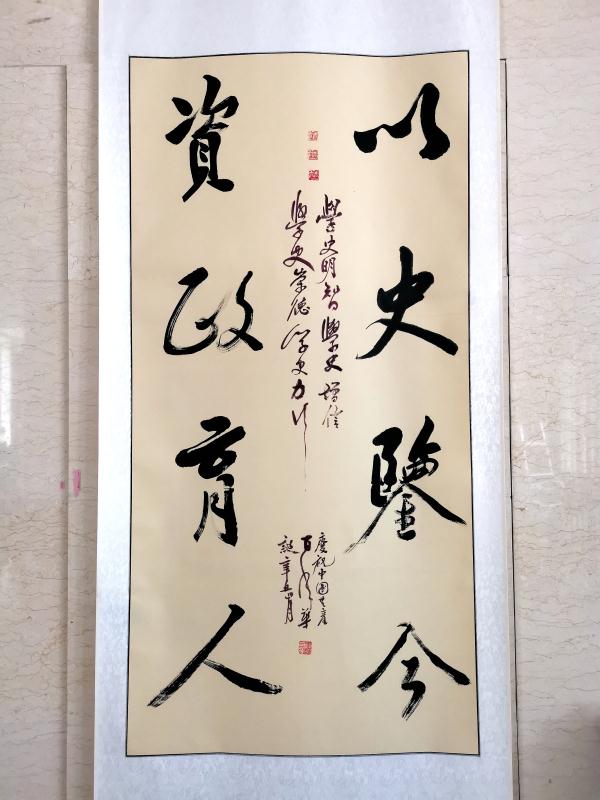 以史鑒今
資政育人
學史明智學史增信
學史崇德學史力行
慶祝中國共產
百年華
誕辛丑